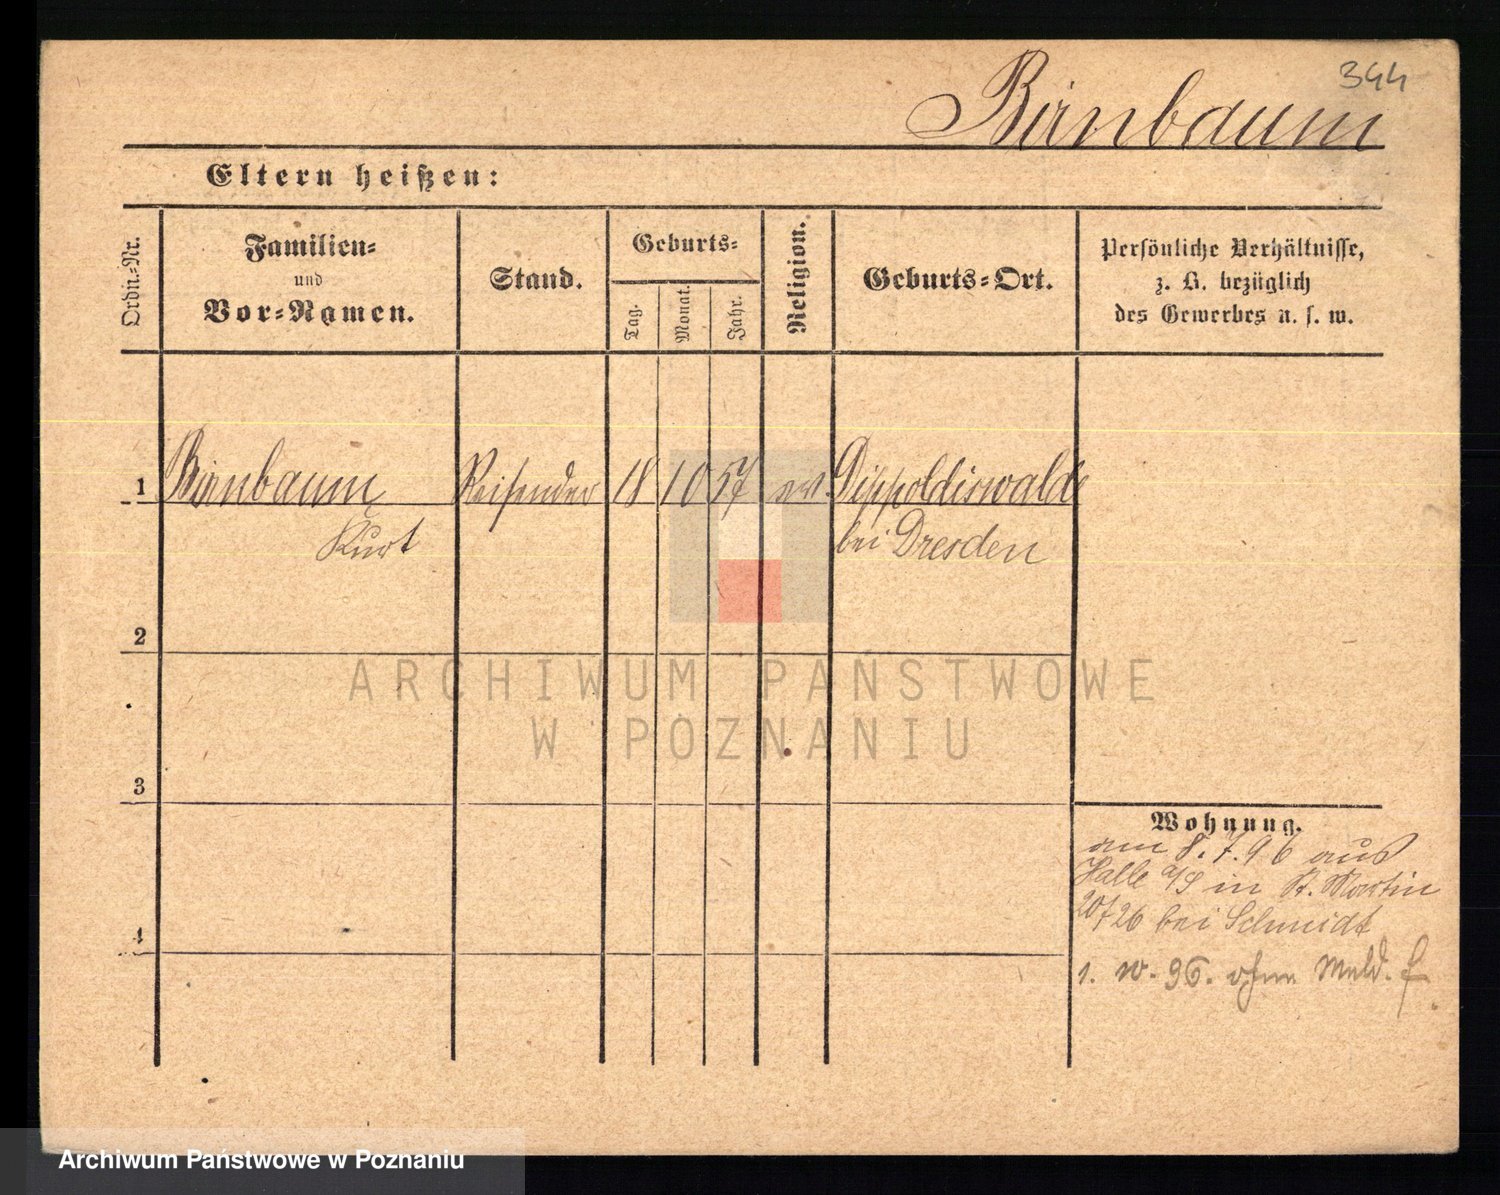 344
Birnbaum
Eltern heißen:
Ordn.-Nr.
Familien-
und
Vor-Namen.
Stand.
Geburts-
Tag.
Monat.
Jahr.
Religion.
Geburts-Ort.
Persönliche Verhältnisse,
z. B. bezüglich
des Gewerbes u. s. w.
1 Birnbaum Reisender 18 10 57 ev. Dippoldiswalde
Kurt bei Dresden
2
ARCHIWUM PAŃSTWOWE
W POZNANIU
3
Wohnung.
am 8.7.96 aus
Halle a/S in St. Martin
26 bei Schmidt
4
1. 96. ohne Meld.
Archiwum Państwowe w Poznaniu